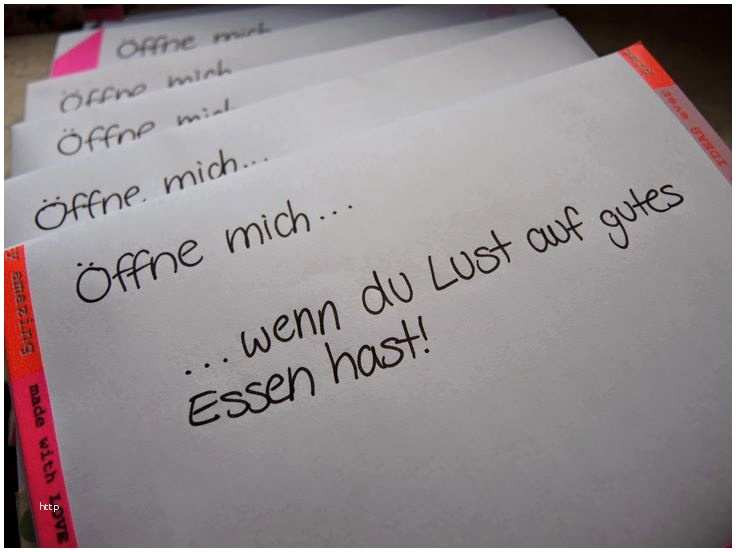 Öffne mich
Öffne mich
Öffne mich
Öffne mich...
Öffne mich...
...wenn du Lust auf gutes
Essen hast!
amazing
made with LOVE
IDEAS
http